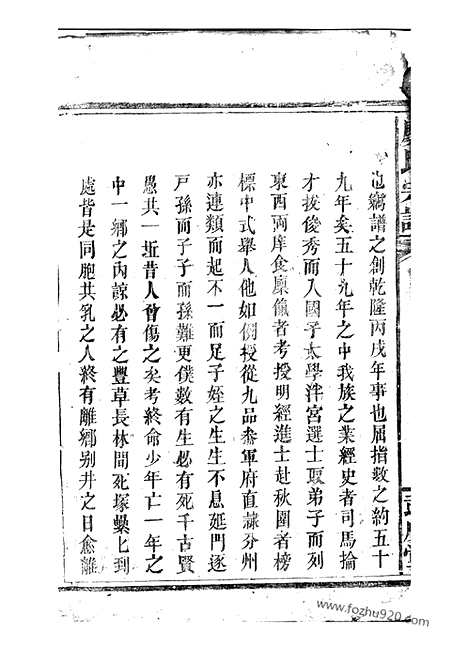 也竊譜之創乾隆丙戌年事也属指数之約五十
九年矣五十九年之中我族之業經史者司馬掄
才拔俊秀而入國子太學泮宮選士取弟子而列
東西両庠食廩餼者考授明經進士赴秋圍者榜
標中式舉人他如例授從九品叅軍府直隷分州
亦連類而起不一而足子姪之生生不息延門逐
戸孫而子子而孫難更僕数有生必有死千古賢
愚共一坵昔人曾傷之矣考終命少年亡一年之
中一鄉之内諒必有之豐草長林間死塚纍匕到
處皆是同胞共乳之人終有離鄉别井之日愈離
氏宗譜
www.fozhu920.com